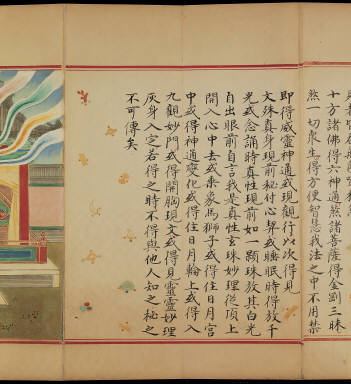 十方諸佛得六神通
菩薩得金剛三昧
一切衆生得方便智慧我法之中不用禁
即得威靈神通或現觀行如次得見
文殊真身現前秘付心契或睡眠時得放千
光或念誦時真性現前如一顆珠放其白光
自出眼前自言我是真性玄珠妙理從頂上
開入心中去或乘象馬獅子或得住日月宮
中或得神通變化或得住日月輪上或得入
九觀妙門或得開胸現文或得見靈靈妙理
灰身入定若得之時不得與他人知之秘之
不可傳矣